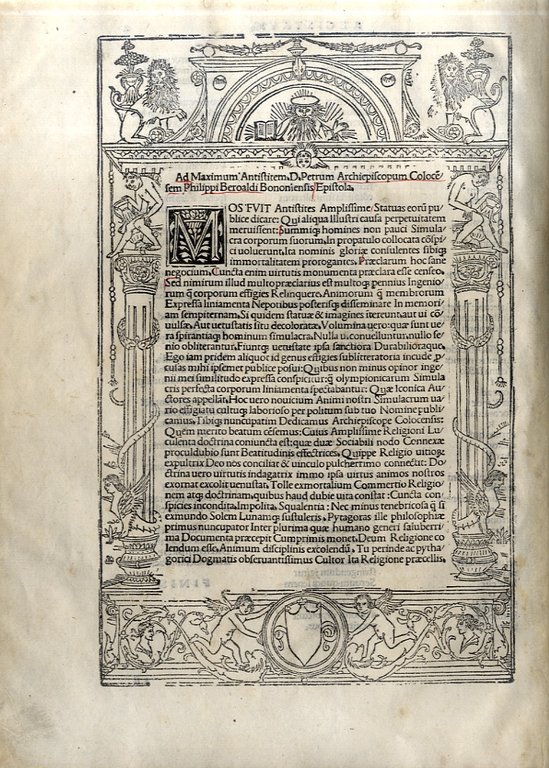 Ad Maximum Antistitem.D.Petrum Archiepiscopum Colocē
sem Philippi Beroaldi Bononiensis Epistola.
MOS FVIT Antistites Amplissime Statuas eorū pu
blice dicare: Qui aliqua Illustri causa perpetuitatem
meruissent: Summiq; homines non pauci Simula
cra corporum suorum, In propatulo collocata cōspi
ci uoluerunt, Ita nominis gloriæ consulentes sibiq;
immortalitatem prorogantes. Præclarum hoc sane
negocium, Cuncta enim uirtutis monumenta præclara esse censeo.
Sed nimirum illud multo præclarius est multoq; pennius Ingenio
rum q̄ corporum effigies Relinquere. Animorum q̄ membrorum
Expressa liniamenta Nepotibus posterisq; disseminare In memori
am sempiternam. Si quidem statuæ & imagines intereunt, aut ui cō
uulsæ, Aut uetustatis situ decoloratæ. Volumina uero: quæ sunt ue
ra spirantiaq; hominum simulacra. Nulla ui conuelluntur, nullo se
nio obliterantur, Fiuntq; uetustate ipsa sanctiora Durabilioraque.
Ego iam pridem aliquot id genus effigies sublitteratoria incude p̱
culas mihi ipsemet publice posui: Quibus non minus opinor inge
nii mei similitudo expressa conspicitur: q̄ olympionicarum Simula
cris perfecta corporum liniamenta spectabantur: Quæ Iconica Au
ctores appellāt. Hoc uero nouicium Animi nostri Simulacrum ua
rio effigiatu cultuq; laborioso per politum sub tuo Nomine publi
camus. Tibiq; nuncupatim Dedicamus Archiepiscope Colocensis:
Quem merito beatum cēsemus: Cuius Amplissime Religioni Lu
culenta doctrina coniuncta est: quæ duæ Sociabili nodo Connexæ
proculdubio sunt Beatitudinis effectrices. Quippe Religio uitiorū
expultrix Deo nos conciliat & uinculo pulcherrimo connectit: Do
ctrina uero uirtutis indagatrix immo ipsa uirtus animos nostros
exornat excolit uenustat. Tolle exmortalium Commertio Religio
nem atq; doctrinam, quibus haud dubie uita constat: Cuncta con
spicies incondita, Impolita. Squalentia: Nec minus tenebricosa q̄ si
exmundo Solem Lunamq; sustuleris. Pytagoras ille philosophiæ
primus nuncupator Inter plurima quæ humano generi saluberri
ma Documenta præcepit Cumprimis monet. Deum Religione co
lendum esse. Animum disciplinis excolendū. Tu perinde ac pytha
gorici Dogmatis obseruantissimus Cultor Ita Religione præcellis,